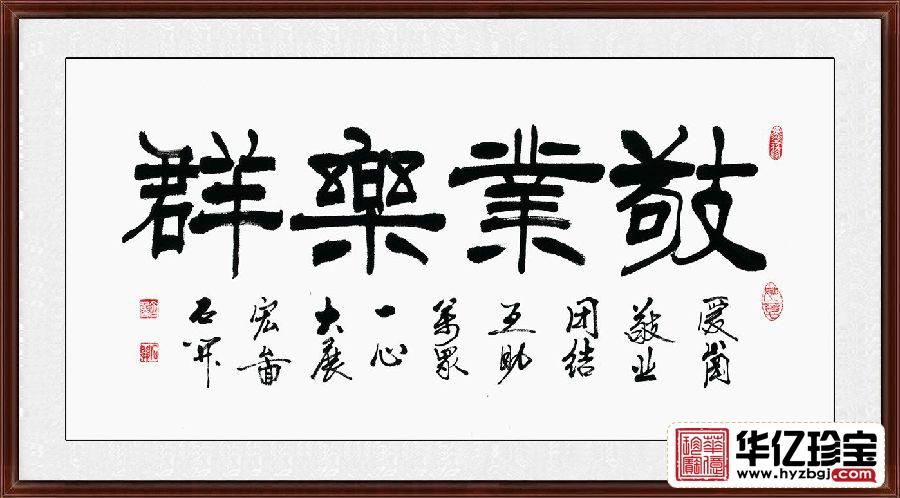 敬業樂群
爱崗
敬业
团结
互助
萬眾
一心
大展
宏啚
石开
华亿珍宝
www.hyzbgj.com